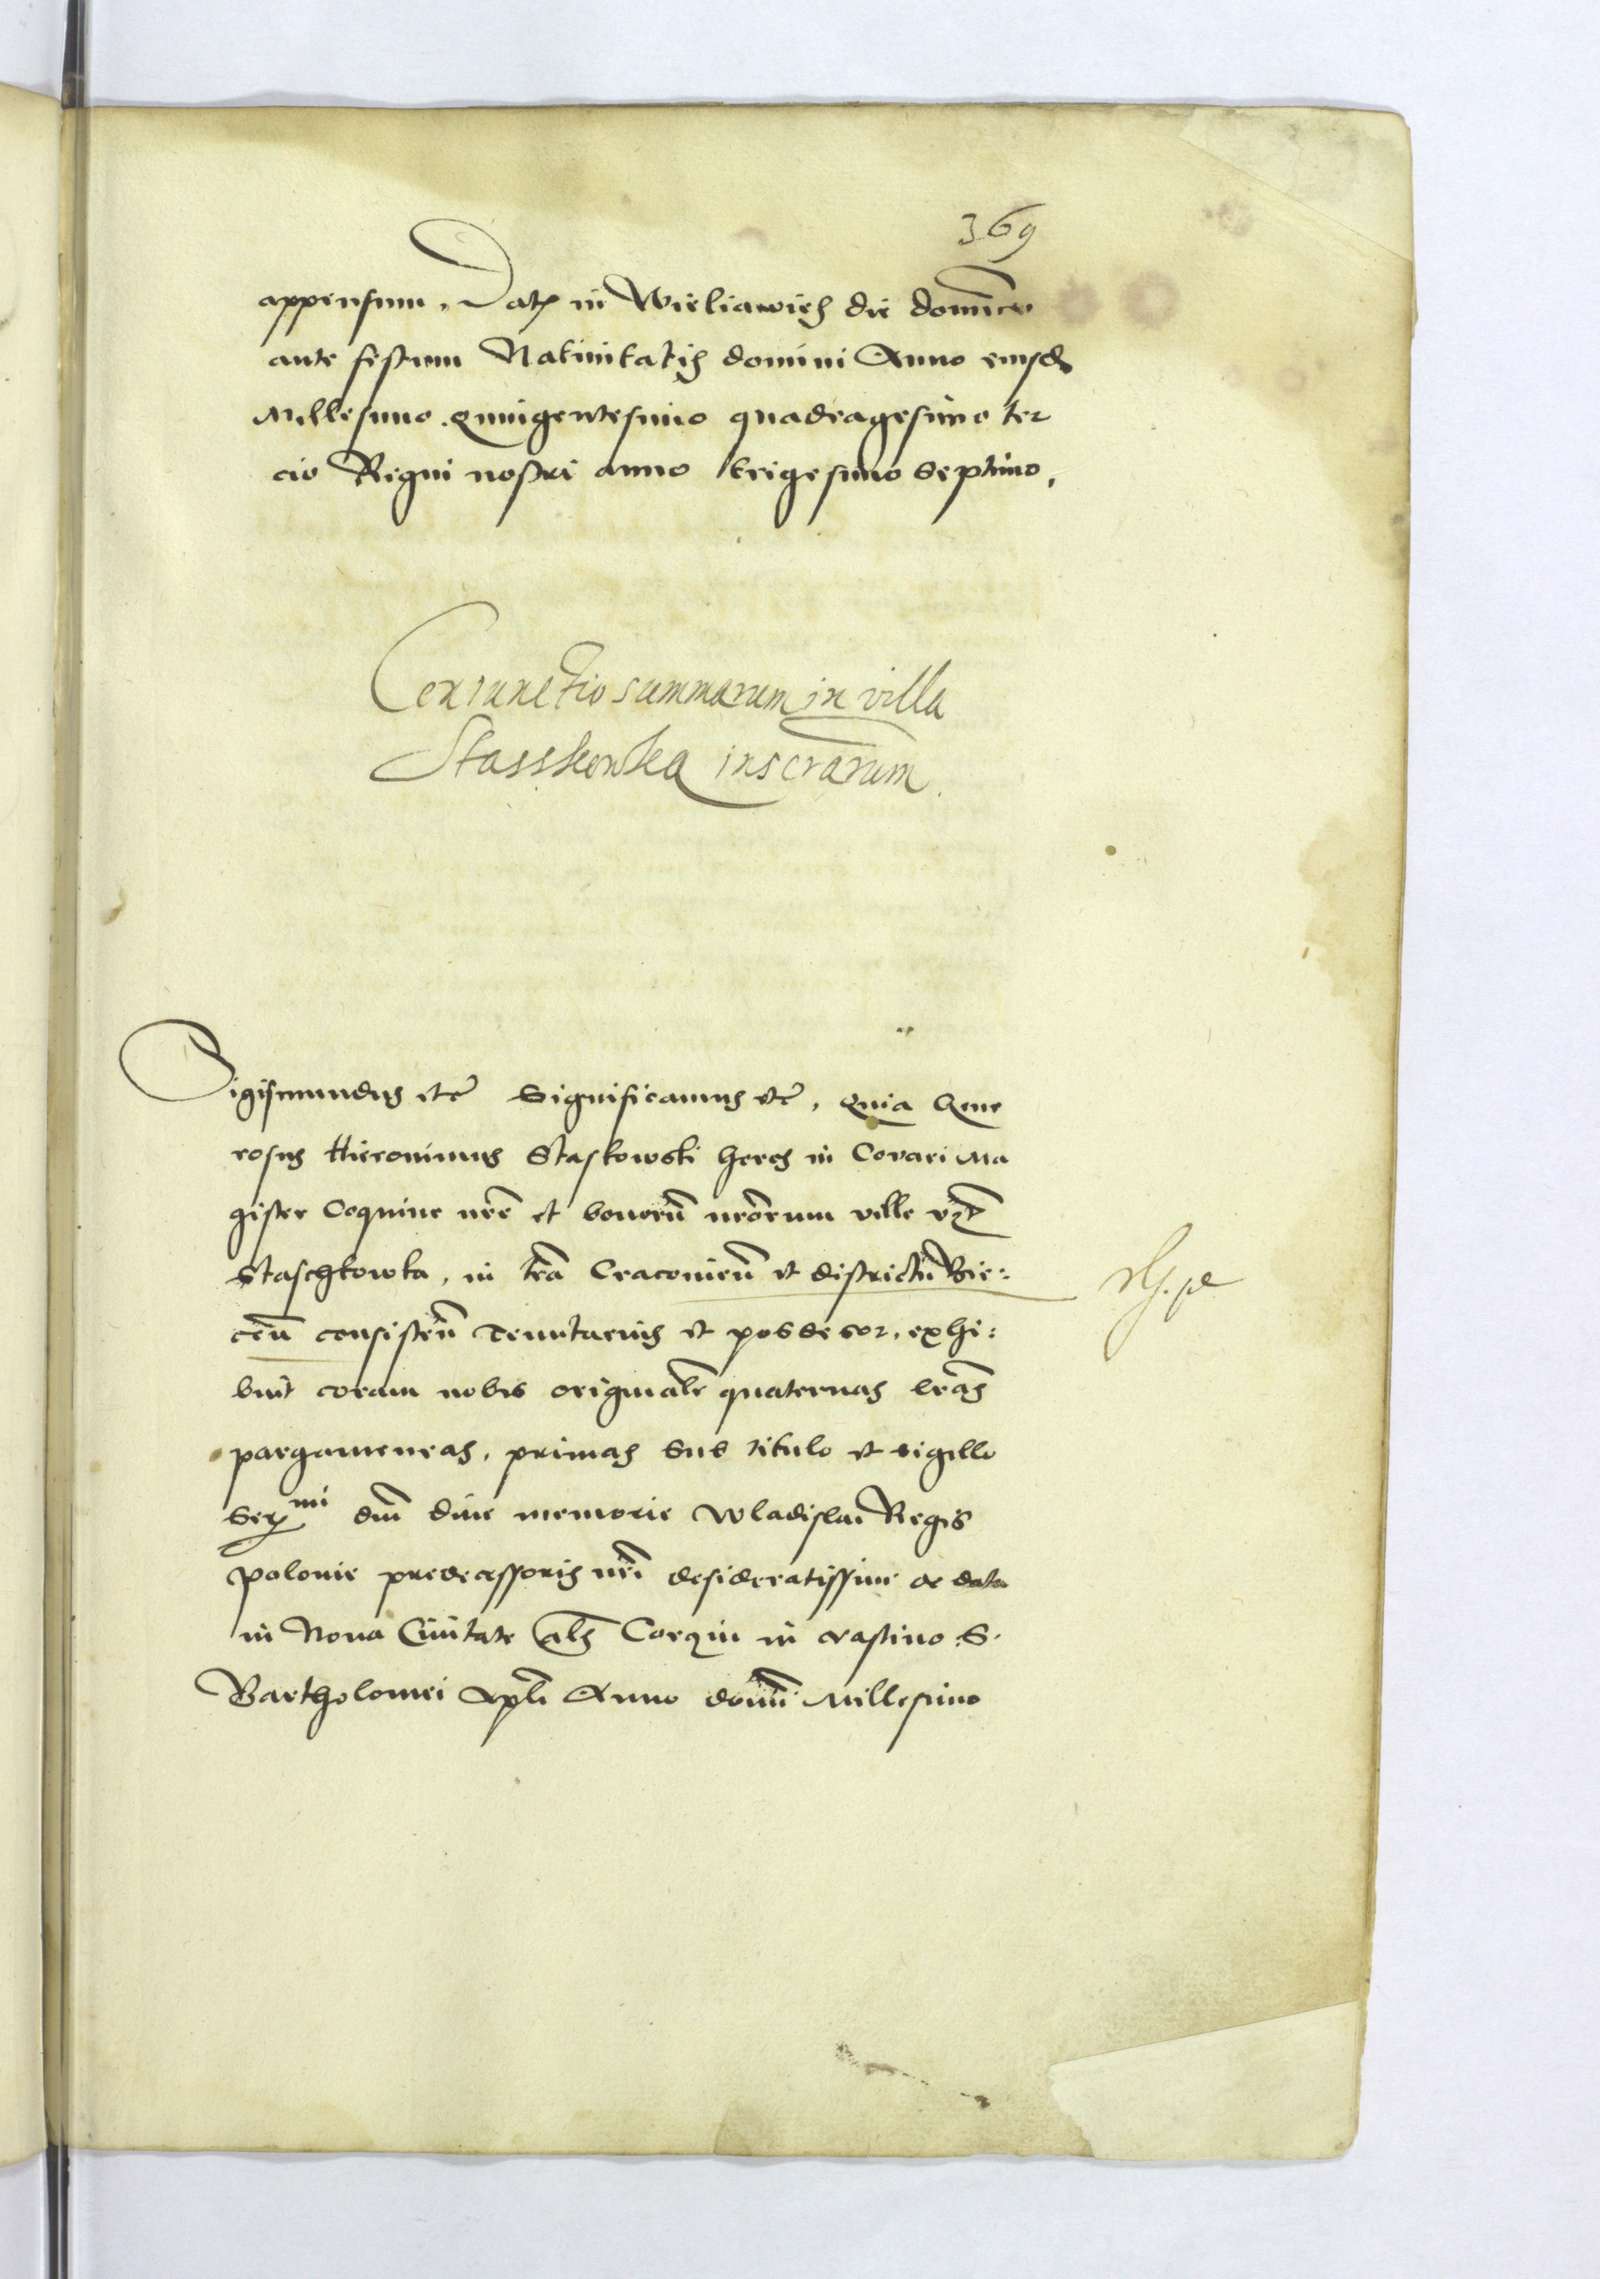 369
appensum. Dat in Wieliawies die dominico
ante festum Natiuitatis domini Anno eiusd
Millesimo quingentesimo quadragesimo ter
cio Regni nostri anno trigesimo septimo.
Coniunctio summarum in villa
Stasskowka inscrarum.
Sigismundus etc Significamus etc, quia Gene
rosus Hieronimus Staskowski heres in Covari Ma
gister Coquine nre et bonorū nrorum ville
Staschkowka, in tra Cracovien et districtū Bie:
ceñ consisteñ Tenutarius et possessor, exhi:
buit coram nobis originale quaternas lras
pargameneas, primas sub titulo et sigillo
Ser mi dni dive memorie Wladislai Regis
Polonie predecessoris nri desideratissimi de data
in Nova Civitate als Corczin in crastino S.
Bartholomei Apli Anno domini Millesimo